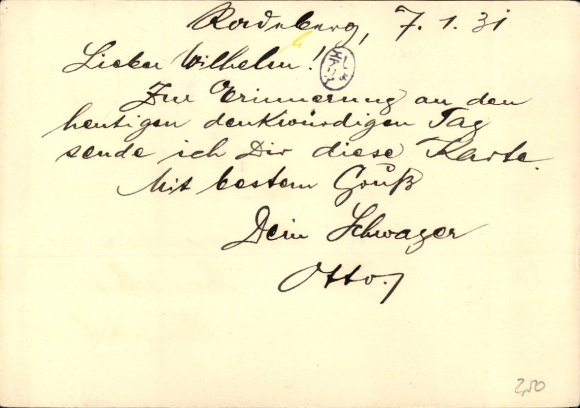 Radeberg, 7.1.31
Lieber Wilhelm!
Zur Erinnerung an den
heutigen denkwürdigen Tag
sende ich Dir diese Karte.
Mit bestem Gruß
Dein Schwager
Otto.
2,50